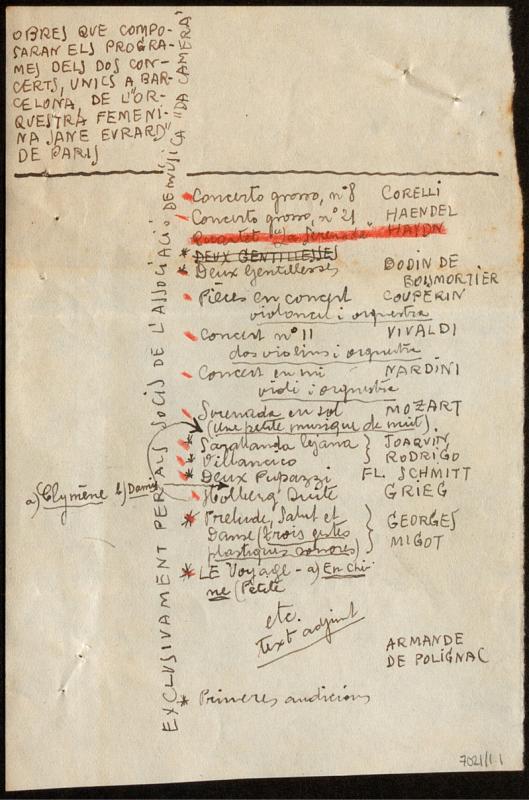 OBRES QUE COMPO-
SARAN ELS PROGRA-
MES DELS DOS CON-
CERTS, UNICS A BAR-
CELONA, DE L'"OR-
QUESTRA FEMENI-
NA JANE EVRARD"
DE PARIS
EXCLUSIVAMENT PER ALS SOCIS DE L'ASSOCIACIÓ DE MÚSICA "DA CAMERA"
Concerto grosso, nº 8 CORELLI
Concerto grosso, nº 21 HAENDEL
Quartet "La Serenade" HAYDN
* DEUX GENTILLESSES
Deux Gentillesses BODIN DE
BOISMORTIER
Pièces en concert COUPERIN
violoncel i orquestra
Concert nº 11 VIVALDI
dos violins i orquestra
Concert en mi NARDINI
violí i orquestra
Serenada en sol MOZART
(Une petite musique de nuit).
* Sarabanda lejana } JOAQUIN
* Villancico } RODRIGO
* Deux Pupazzi FL. SCHMITT
a) Clymène b) Damis
Holberg Suite GRIEG
* Prelude, Salut et } GEORGES
Danse (trois gestes MIGOT
plastiques sonores)
* LE Voyage - a) En Chi-
ne (Petite
etc.
text adjunt
ARMANDE
DE POLIGNAC
* Primeres audicions
7021/1.1